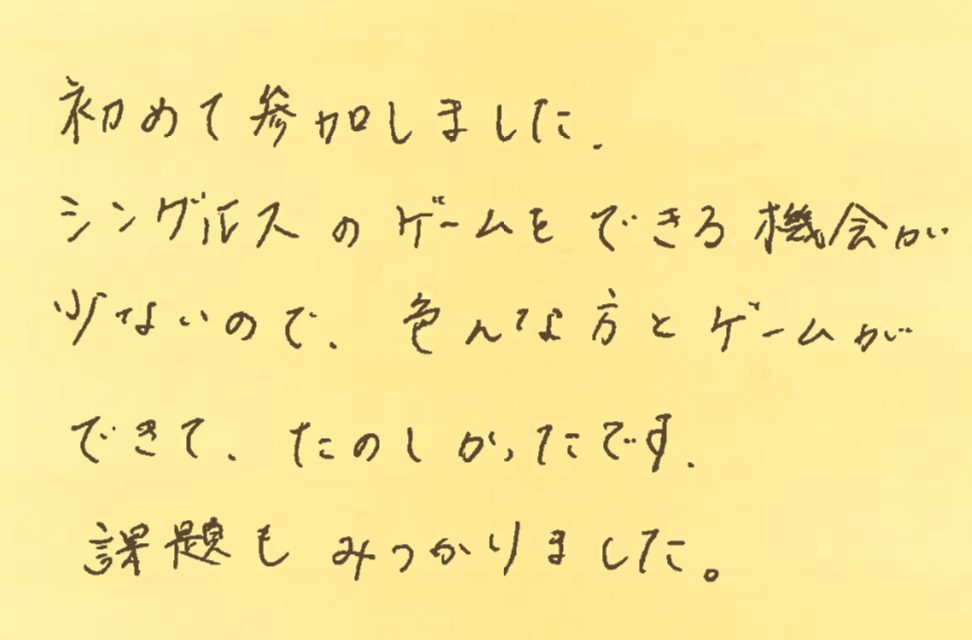 初めて参加しました.
シングルスのゲームをできる機会が
少ないので. 色んな方とゲームが
できて. たのしかったです.
課題もみつかりました。